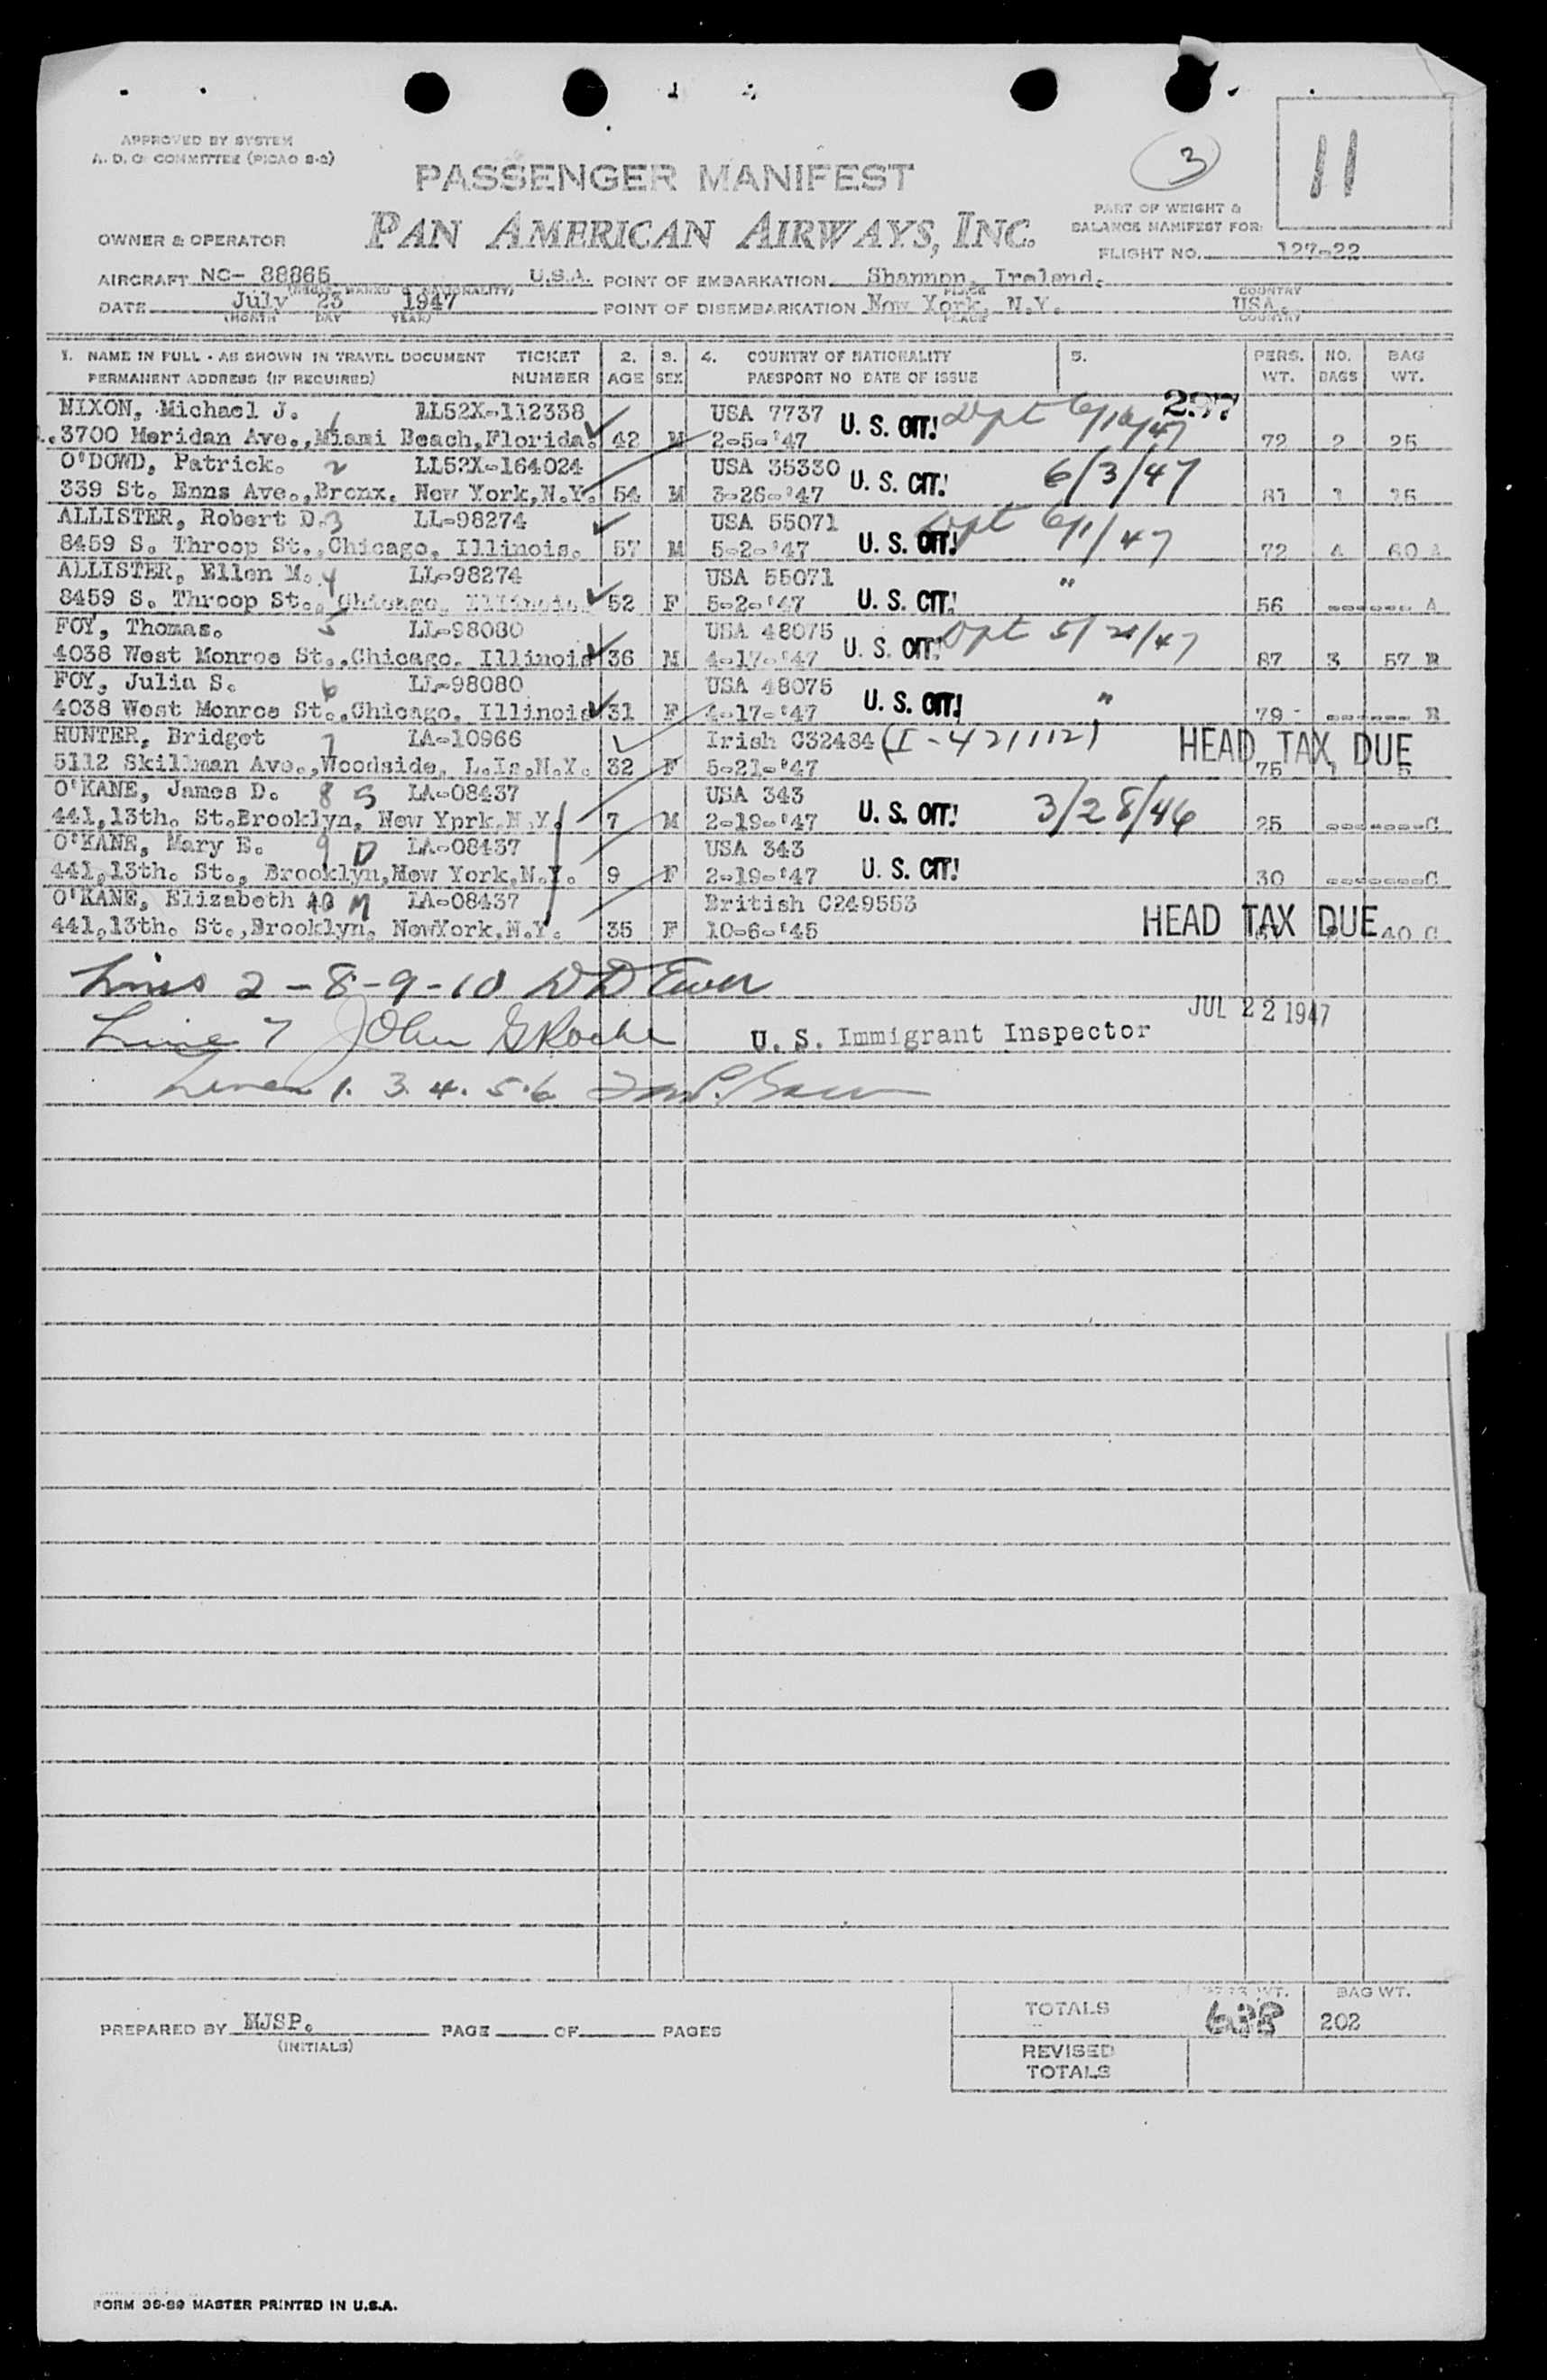 APPROVED BY SYSTEM
A. D. O. COMMITTEE (PICAO 8-2)
3
11
PASSENGER MANIFEST
PAN AMERICAN AIRWAYS, INC.
PART OF WEIGHT &
BALANCE MANIFEST FOR:
OWNER & OPERATOR
FLIGHT NO. 127-22
AIRCRAFT NC- 88865 U.S.A. POINT OF EMBARKATION Shannon, Ireland.
PLACE COUNTRY
DATE July 23 1947 POINT OF DISEMBARKATION New York, N.Y. USA.
(MONTH DAY YEAR) PLACE COUNTRY
1. NAME IN FULL - AS SHOWN IN TRAVEL DOCUMENT TICKET 2. 3. 4. COUNTRY OF NATIONALITY 5. PERS. NO. BAG
PERMANENT ADDRESS (IF REQUIRED) NUMBER AGE SEX PASSPORT NO DATE OF ISSUE WT. BAGS WT.
297
NIXON, Michael J. 1 LL52X-112338 USA 7737 U. S. CIT! Dpt 6/10/47
3700 Meridan Ave.,Miami Beach,Florida. 42 M 2-5-'47 72 2 25
O'DOWD, Patrick. 2 LL52X-164024 USA 35330 U. S. CIT! 6/3/47
339 St. Enns Ave.,Bronx. New York,N.Y. 54 M 3-26-'47 81 1 15
ALLISTER, Robert D. 3 LL-98274 USA 55071 Dpt 6/1/47
8459 S. Throop St.,Chicago, Illinois. 57 M 5-2-'47 U. S. CIT! 72 4 60 A
ALLISTER, Ellen M. 4 LL-98274 USA 55071 "
8459 S. Throop St., Chicago, Illinois. 52 F 5-2-'47 U. S. CIT! 56 ------- A
FOY, Thomas. 5 LL-98080 USA 48075 U. S. CIT! Dpt 5/21/47
4038 West Monroe St.,Chicago, Illinois 36 M 4-17-'47 87 3 57 B
FOY, Julia S. 6 LL-98080 USA 48075 U. S. CIT! "
4038 West Monroe St.,Chicago, Illinois 31 F 4-17-'47 79 ------- B
HUNTER, Bridget 7 LA-10966 Irish C32484 (I-421112) HEAD TAX DUE
5112 Skillman Ave.,Woodside, L.Is.N.Y. 32 F 5-21-'47 75 1 5
O'KANE, James D. 8 S LA-08437 USA 343 U. S. CIT! 3/28/46
441,13th. St.Brooklyn, New Yprk.N.Y. 7 M 2-19-'47 25 -------C
O'KANE, Mary E. 9 D LA-08437 USA 343
441,13th. St., Brooklyn,New York,N.Y. 9 F 2-19-'47 U. S. CIT! 30 -------C
O'KANE, Elizabeth 10 M LA-08437 British C249553 HEAD TAX DUE
441,13th. St.,Brooklyn. NewYork.N.Y. 35 F 10-6-'45 40 C
Lines 2-8-9-10
Line 7 John G Roche U. S. Immigrant Inspector JUL 22 1947
Lines 1. 3. 4. 5. 6
TOTALS 202 BAG WT.
PREPARED BY MJSP. PAGE OF PAGES
(INITIALS)
REVISED
TOTALS
FORM 36-89 MASTER PRINTED IN U.S.A.